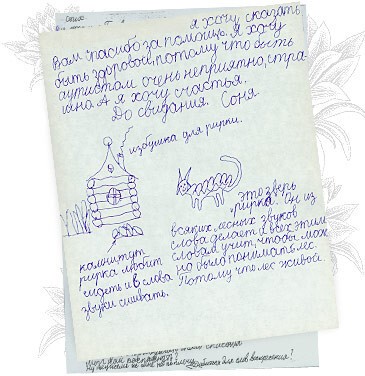 я хочу сказать
Вам спасибо за помощь. Я хочу
быть здоровой, потому что быть
аутистом очень неприятно, стра-
шно. А я хочу счастья.
До свидания. Соня
избушка для рирки.
это зверь
рирка. Он из
всяких лесных звуков
слова делает и всех этим
словам учит, чтобы мож
но было понимать лес.
Потому что лес живой.
камни тут
рирка любит
сидеть и в слова
звуки сшивать.